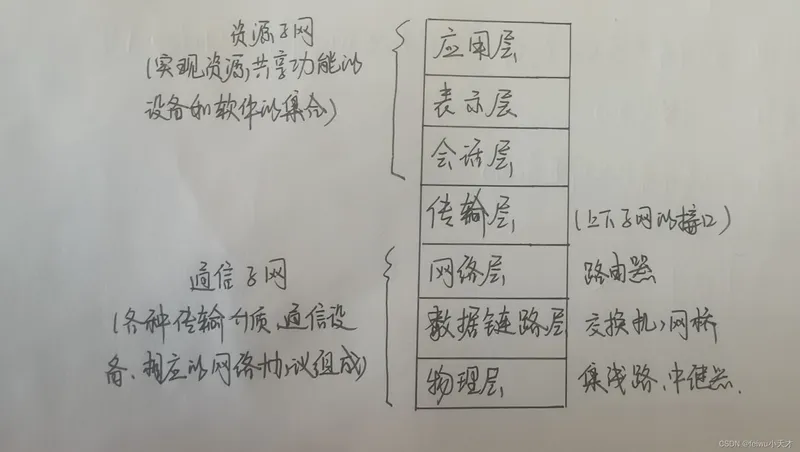 资源子网
(实现资源共享功能的
设备和软件的集合)
应用层
表示层
会话层
传输层
(上下子网的接口)
通信子网
(各种传输介质、通信设
备、相应的网络协议组成)
网络层
路由器
数据链路层
交换机、网桥
物理层
集线路、中继器.
CSDN @feiwu小天才